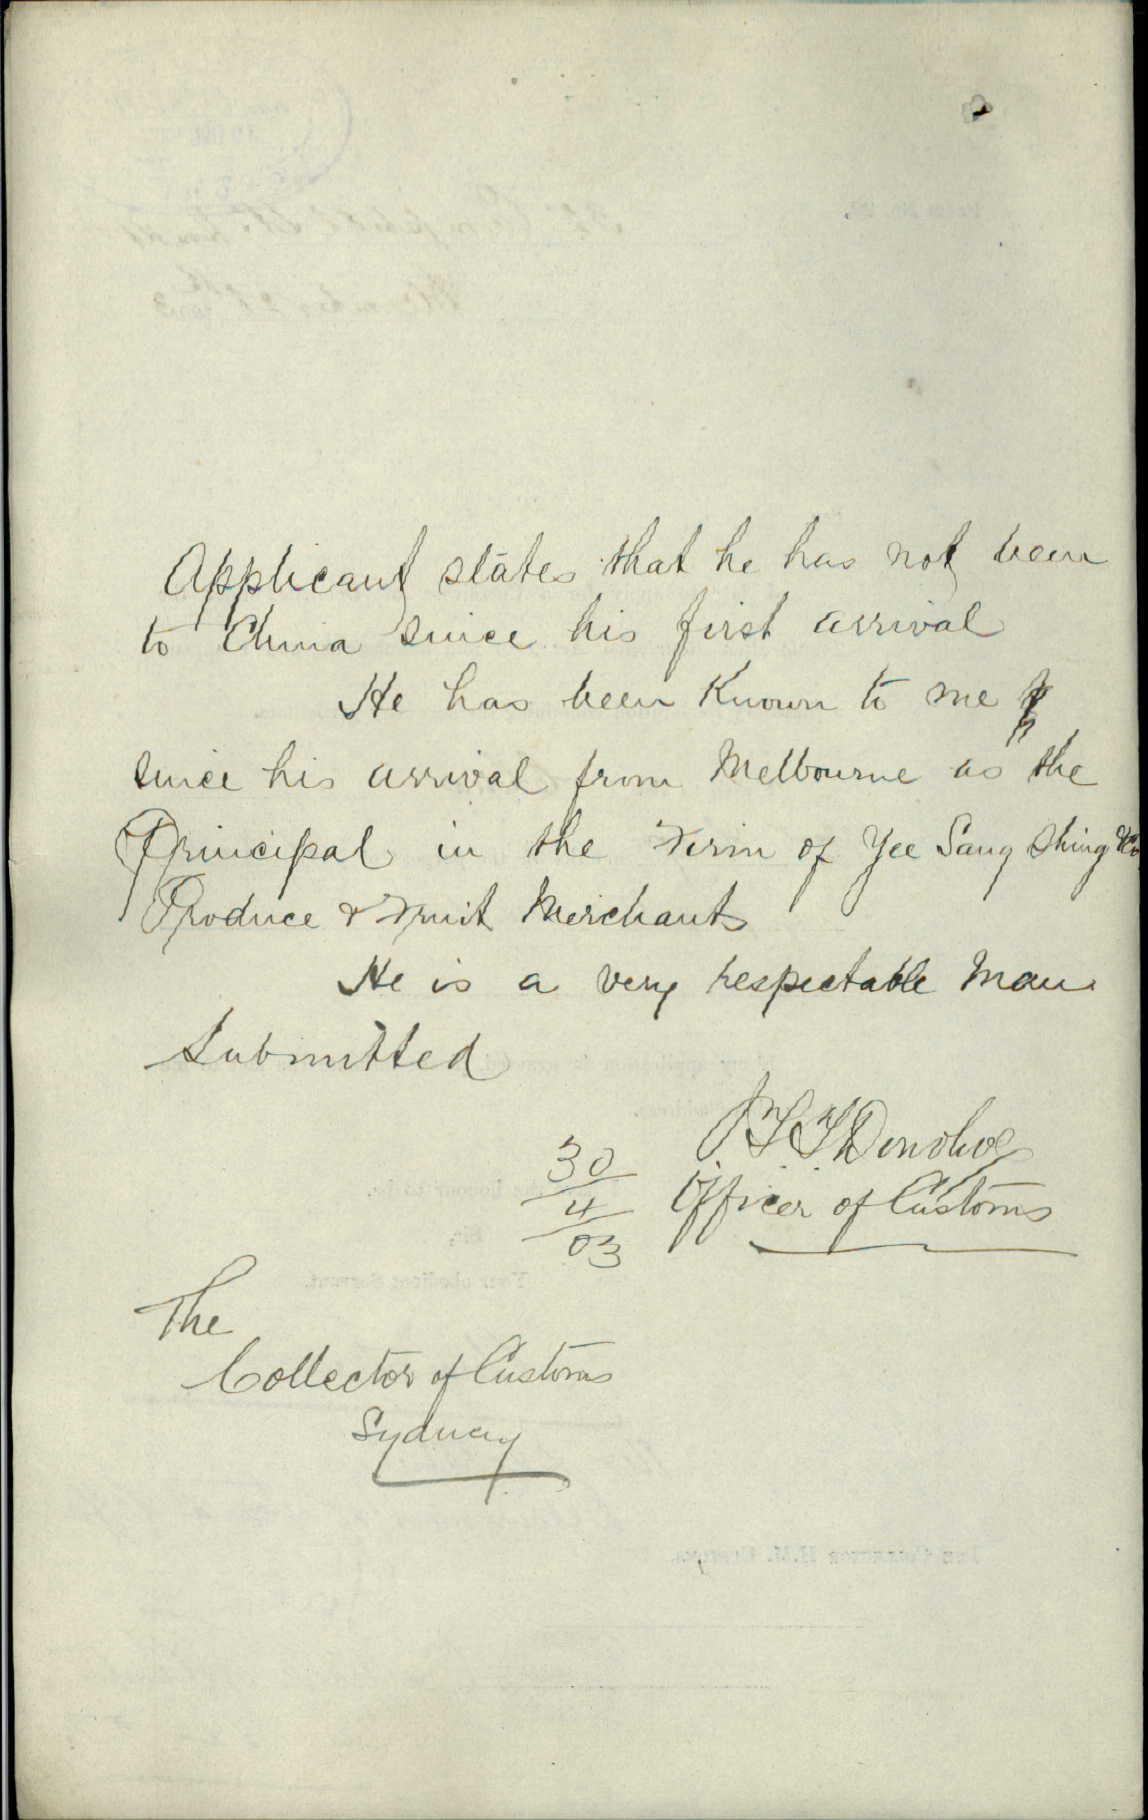 Applicant states that he has not been
to China since his first arrival
He has been Known to me
since his arrival from Melbourne as the
Principal in the Firm of Yee Sang Shing & Co
Produce & Fruit Merchants
He is a very respectable Man
Submitted
Donohoe
30/4/03 Officer of Customs
The
Collector of Customs
Sydney